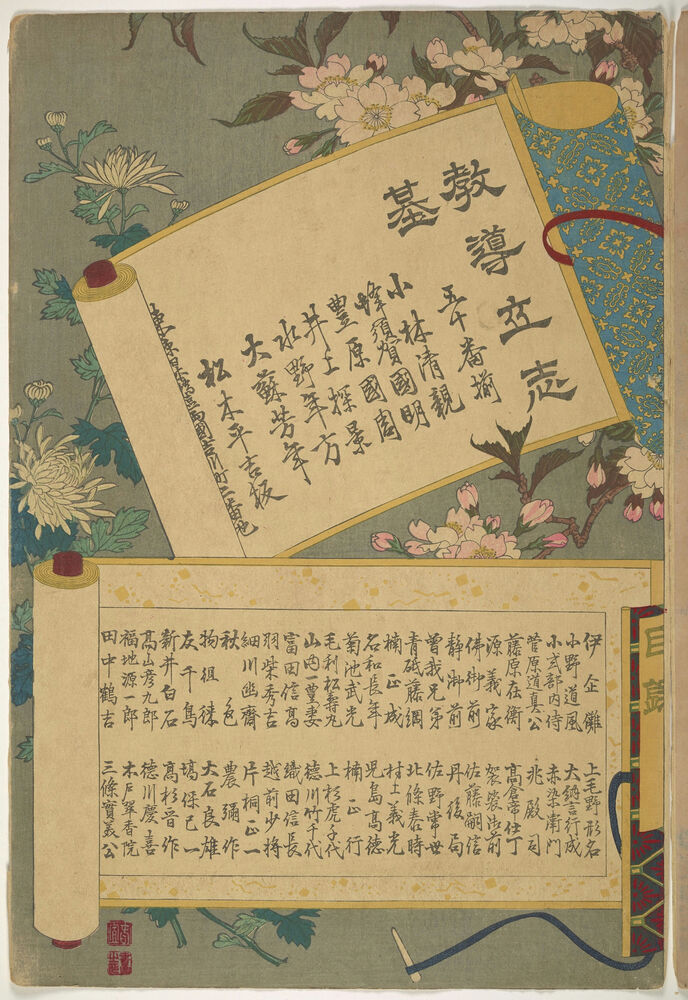 教導立志
基
五十番揃
小林清親
蜂須賀國明
豊原國周
井上探景
水野年方
大蘇芳年
松木平吉板
東京日本橋區両國吉川町二番地
目録
伊企儺 上毛野形名
小野道風 大納言行成
小式部内侍 赤染衛門
菅原道真公 兆殿司
藤原在衡 高倉帝仕丁
源義家 袈裟御前
佛御前 佐藤嗣信
静御前 丹後局
曽我兄弟 佐野常世
青砥藤綱 北條泰時
楠正成 村上義光
名和長年 児島高徳
菊池武光 楠正行
毛利松壽丸 上杉虎千代
山内一豊妻 徳川竹千代
富田信高 織田信長
羽柴秀吉 越前少将
細川幽齋 片桐正一
秋色 農彌作
物徂徠 大石良雄
友千鳥 塙保己一
新井白石 高杉晋作
高山彦九郎 徳川慶喜
福地源一郎 木戸翠香院
田中鶴吉 三條實美公